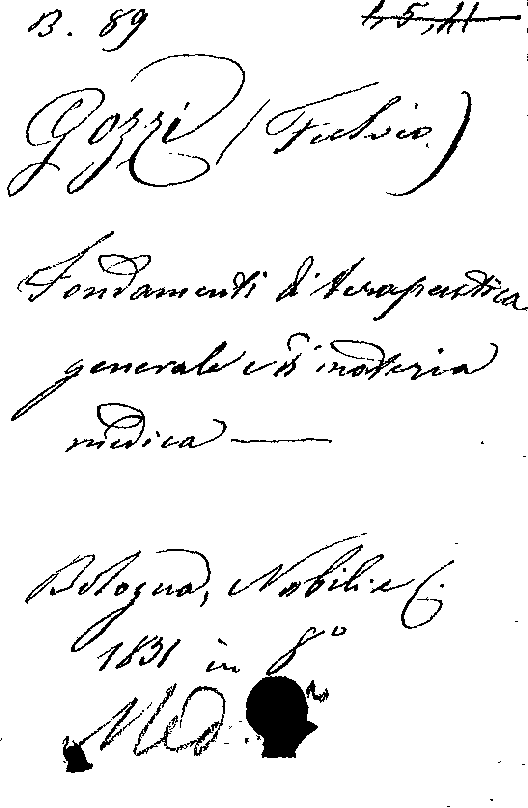 B. 89 45,41
Gozzi (Fulvio)
Fondamenti di terapeutica
generale e di materia
medica —
Bologna, Nobili e C.
1831 in 8º
Med.